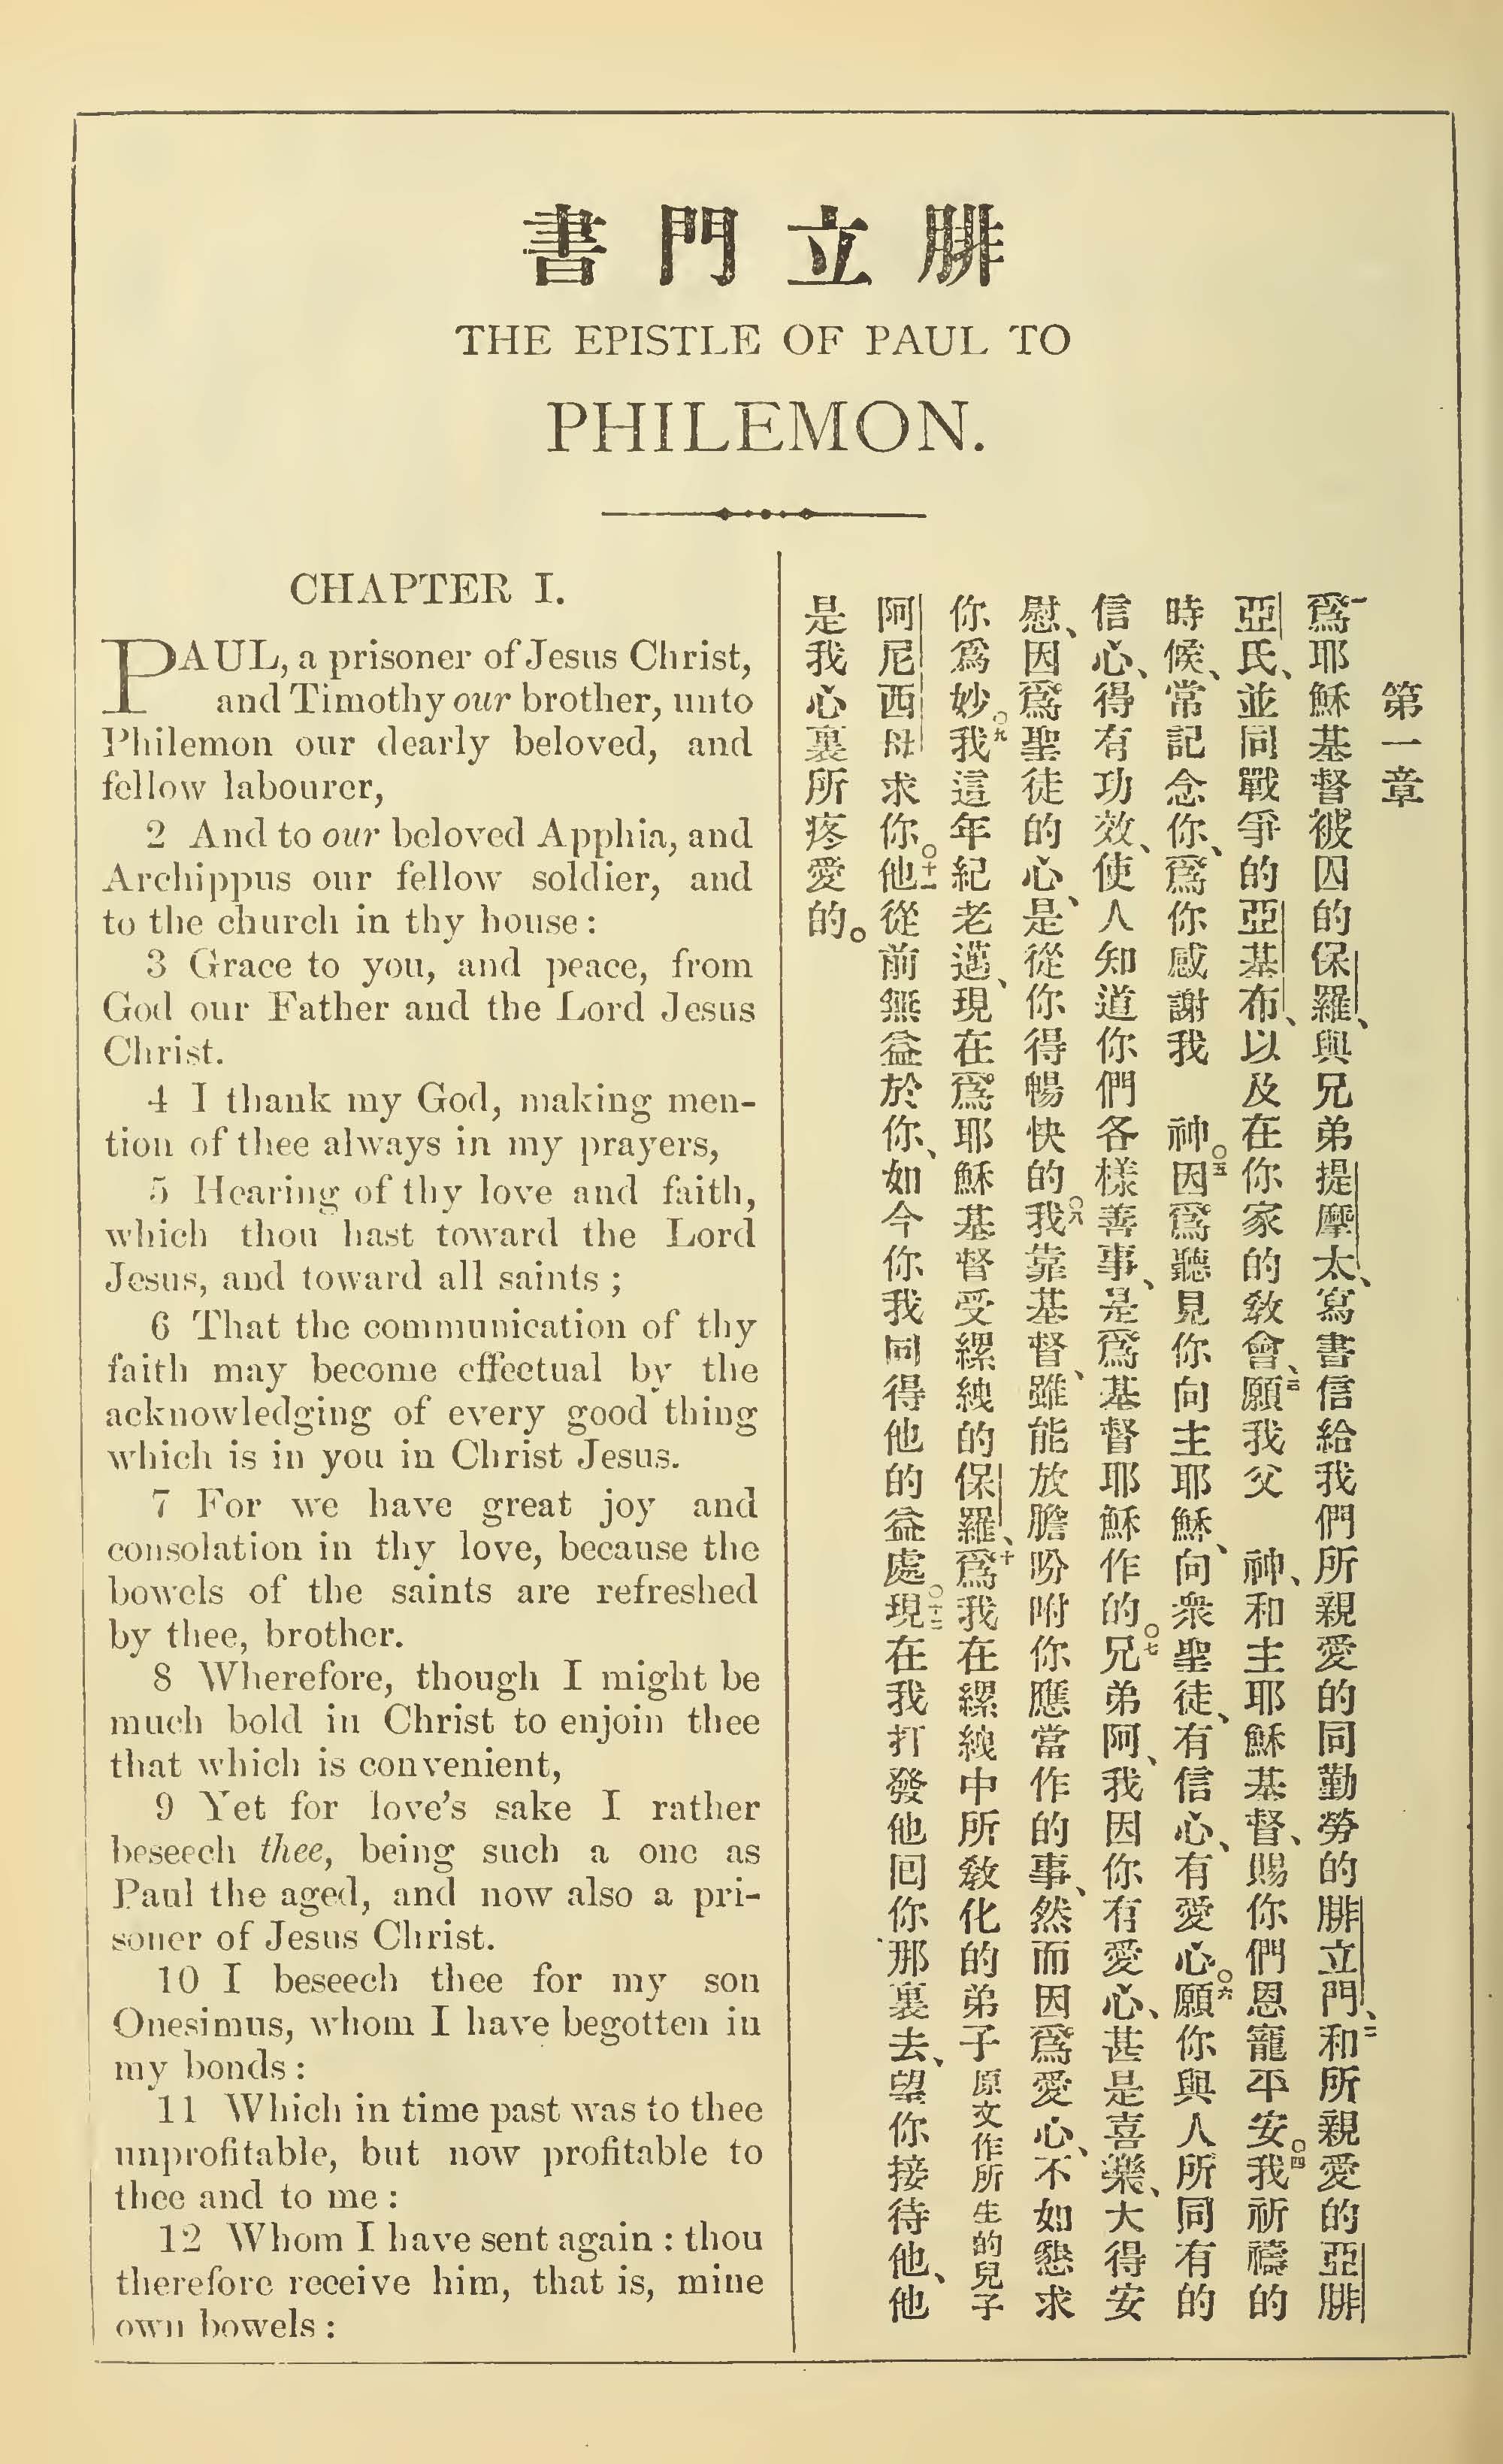 腓立門書
THE EPISTLE OF PAUL TO
PHILEMON.
CHAPTER I.
PAUL, a prisoner of Jesus Christ,
and Timothy our brother, unto
Philemon our dearly beloved, and
fellow labourer,
2 And to our beloved Apphia, and
Archippus our fellow soldier, and
to the church in thy house:
3 Grace to you, and peace, from
God our Father and the Lord Jesus
Christ.
4 I thank my God, making men-
tion of thee always in my prayers,
5 Hearing of thy love and faith,
which thou hast toward the Lord
Jesus, and toward all saints;
6 That the communication of thy
faith may become effectual by the
acknowledging of every good thing
which is in you in Christ Jesus.
7 For we have great joy and
consolation in thy love, because the
bowels of the saints are refreshed
by thee, brother.
8 Wherefore, though I might be
much bold in Christ to enjoin thee
that which is convenient,
9 Yet for love's sake I rather
beseech thee, being such a one as
Paul the aged, and now also a pri-
soner of Jesus Christ.
10 I beseech thee for my son
Onesimus, whom I have begotten in
my bonds:
11 Which in time past was to thee
unprofitable, but now profitable to
thee and to me:
12 Whom I have sent again: thou
therefore receive him, that is, mine
own bowels:
第一章
一爲耶穌基督被囚的保羅、與兄弟提摩太、寫書信給我們所親愛的同勤勞的腓立門、二和所親愛的亞腓
亞氏、並同戰爭的亞基布、以及在你家的敎會、三願我父　神、和主耶穌基督、賜你們恩寵平安。四我祈禱的
時候、常記念你、爲你感謝我　神。五因爲聽見你向主耶穌、向衆聖徒、有信心、有愛心。六願你與人所同有的
信心、得有功效、使人知道你們各樣善事、是爲基督耶穌作的。七兄弟阿、我因你有愛心、甚是喜樂、大得安
慰、因爲聖徒的心、是從你得暢快的。八我靠基督、雖能放膽吩咐你應當作的事、然而因爲愛心、不如懇求
你爲妙。九我這年紀老邁、現在爲耶穌基督受縲絏的保羅、十爲我在縲絏中所敎化的弟子原文作所生的兒子
阿尼西母求你。十一他從前無益於你、如今你我同得他的益處。十二現在我打發他囘你那裏去、望你接待他、他
是我心裏所疼愛的。